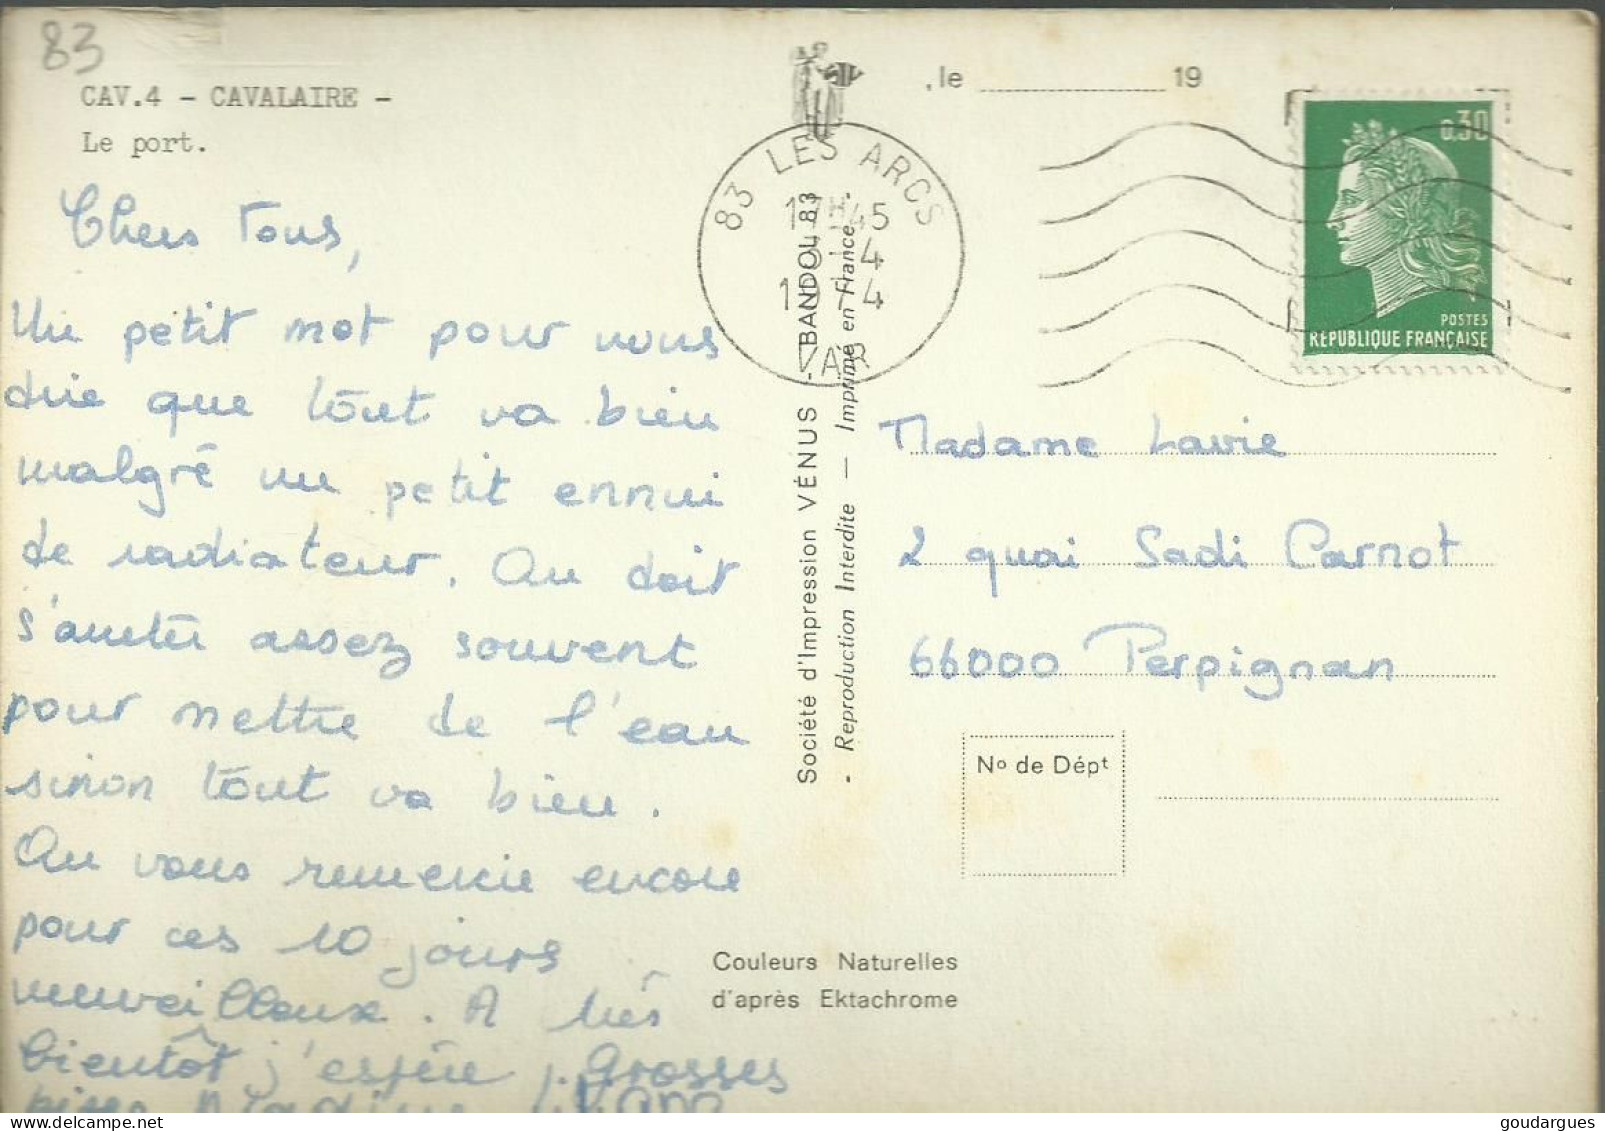 83
CAV.4 - CAVALAIRE -
Le port.
Chers Tous,
Un petit mot pour vous
dire que tout va bien
malgré un petit ennui
de radiateur. On doit
s'arrêter assez souvent
pour mettre de l'eau
sinon tout va bien.
On vous remercie encore
pour ces 10 jours
merveilleux. A très
bientôt j'espère. Grosses
bises Nadine
Société d'Impression VÉNUS - BANDOL 83
- Reproduction Interdite — Imprimé en France -
Couleurs Naturelles
d'après Ektachrome
, le 19
83 LES ARCS
17H45
4
1974
VAR
0,30
POSTES
REPUBLIQUE FRANÇAISE
Madame Lavie
2 quai Sadi Carnot
66000 Perpignan
No de Dépt
goudargues